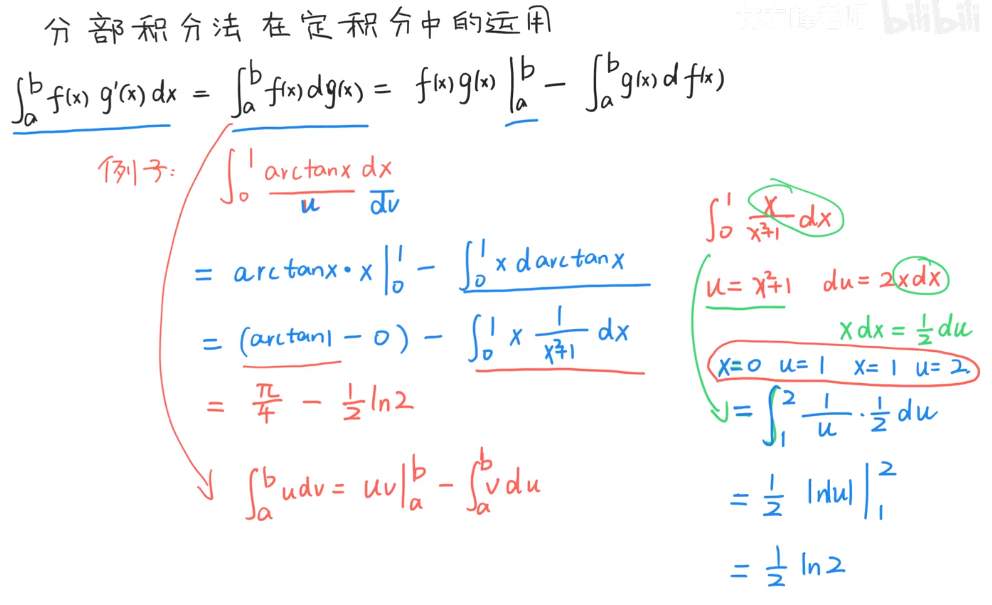 分部积分法在定积分中的运用
bilibili
∫_a^b f(x) g'(x) dx = ∫_a^b f(x) dg(x) = f(x)g(x) |_a^b - ∫_a^b g(x) d f(x)
例子: ∫_0^1 arctanx dx
u dv
= arctanx · x |_0^1 - ∫_0^1 x darctanx
= (arctan1 - 0) - ∫_0^1 x 1/(x²+1) dx
= π/4 - 1/2 ln2
∫_a^b udv = uv |_a^b - ∫_a^b v du
∫_0^1 x/(x²+1) dx
u = x²+1 du = 2xdx
xdx = 1/2 du
x=0 u=1 x=1 u=2
= ∫_1^2 1/u · 1/2 du
= 1/2 ln|u| |_1^2
= 1/2 ln2